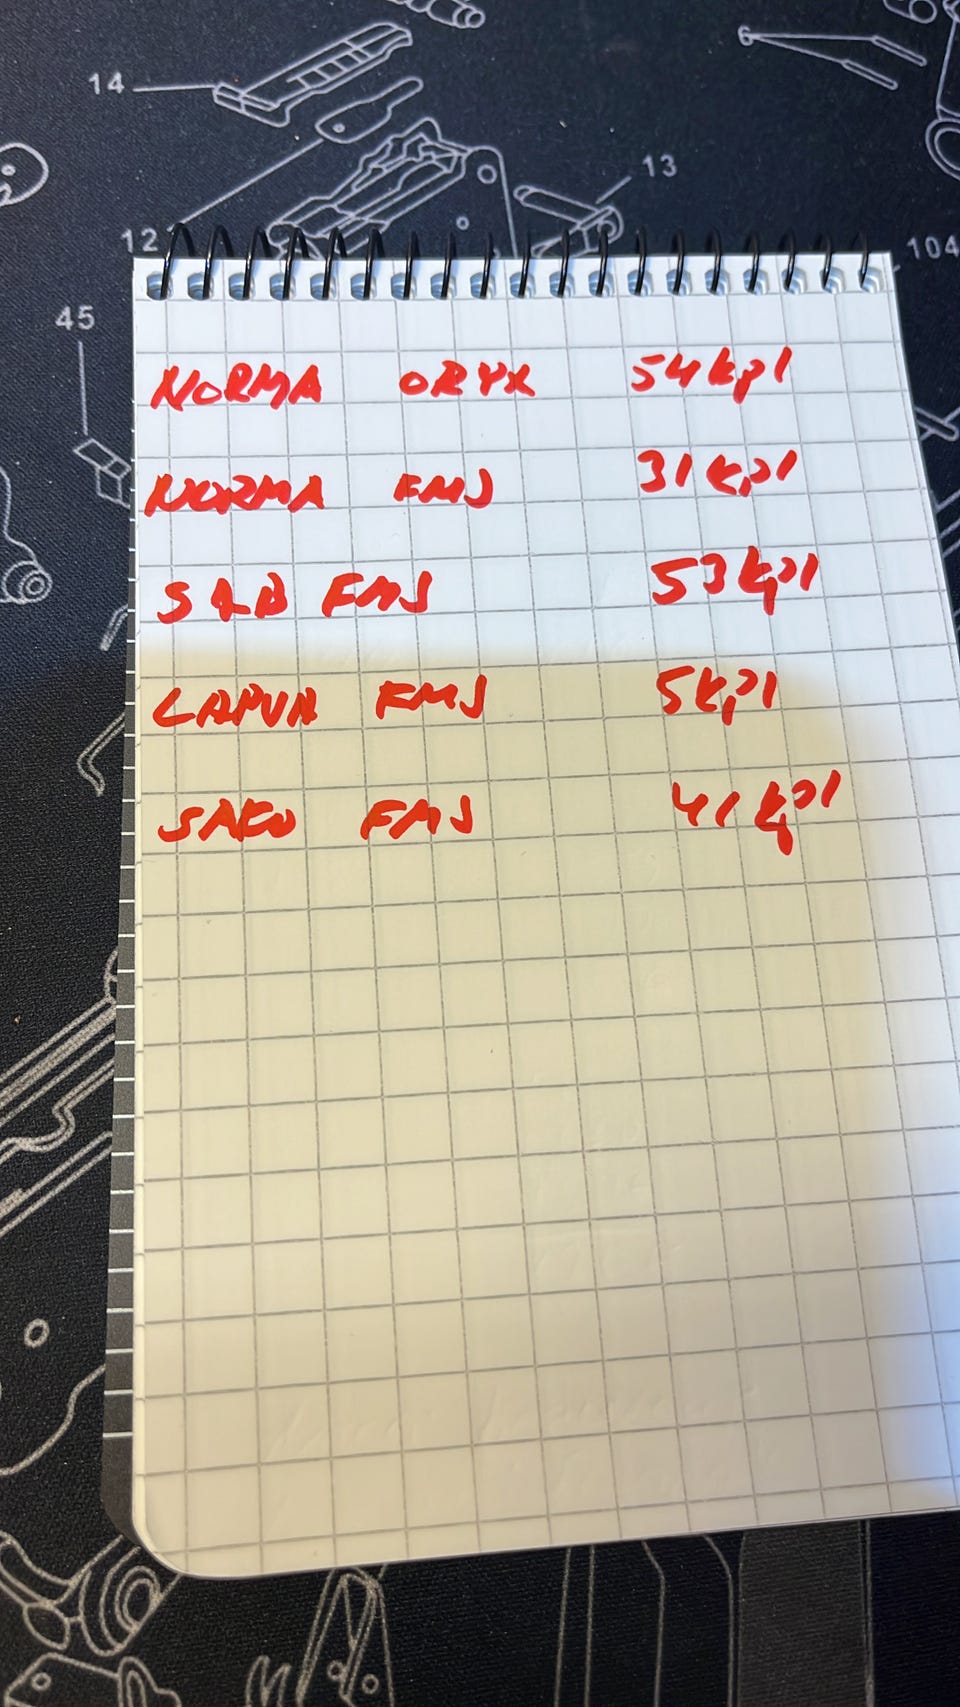 14
13
12
104
45
NORMA ORYX 54kpl
NORMA FMJ 31kpl
S&B FMJ 53kpl
LAPUA FMJ 5kpl
SAKO FMJ 41kpl